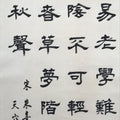 易老學難
陰不可輕
春草夢階
秋聲
宋朱熹